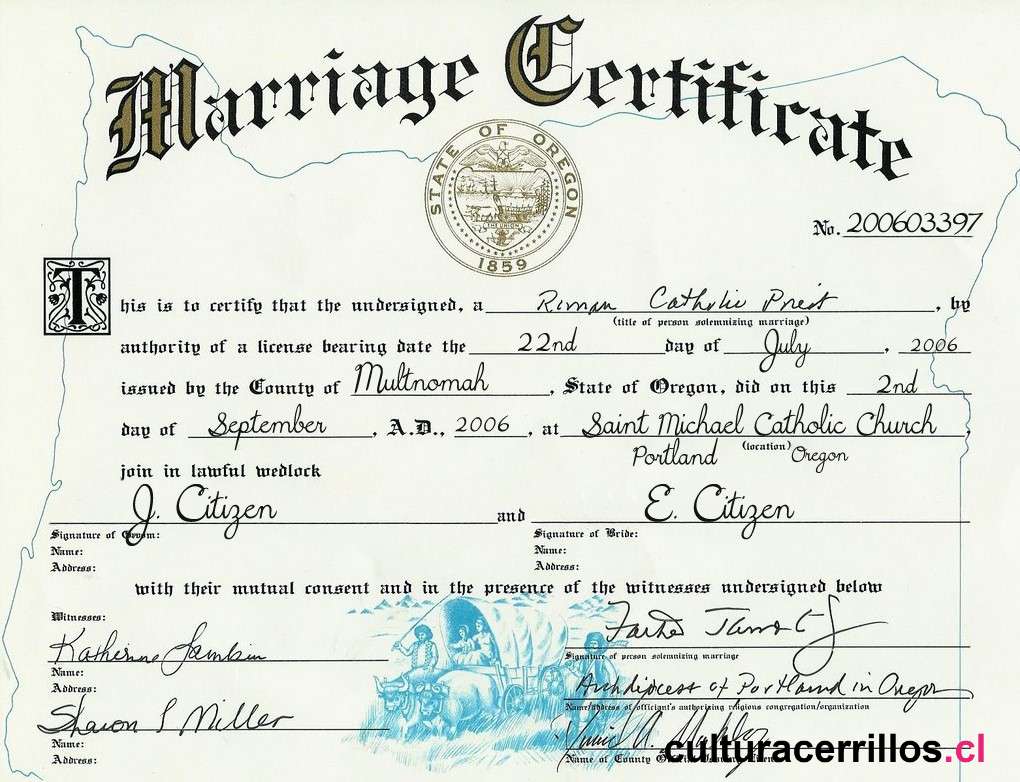 Marriage Certificate
STATE OF OREGON
THE UNION
1859
No. 200603397
This is to certify that the undersigned, a Roman Catholic Priest, by
(title of person solemnizing marriage)
authority of a license bearing date the 22nd day of July, 2006
issued by the County of Multnomah, State of Oregon, did on this 2nd
day of September, A.D., 2006, at Saint Michael Catholic Church,
(location)
Portland Oregon
join in lawful wedlock
J. Citizen and E. Citizen
Signature of Groom: Signature of Bride:
Name: Name:
Address: Address:
with their mutual consent and in the presence of the witnesses undersigned below
Witnesses:
Katherine
Name:
Address:
Sharon L Miller
Name:
Address:
Father
Signature of person solemnizing marriage
Archdiocese of Portland in Oregon
Name/address of officiant's authorizing religious congregation/organization
Name of County
culturacerrillos.cl